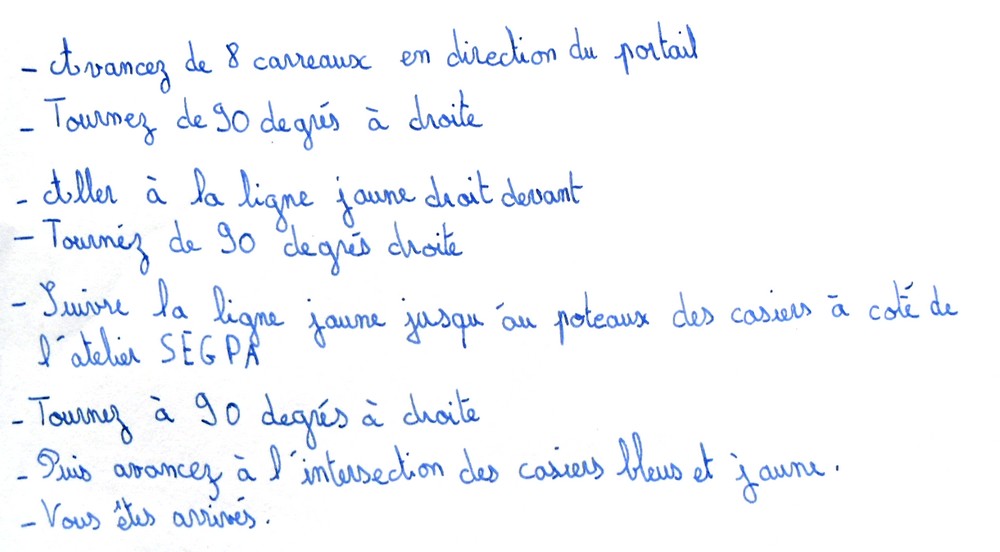 - Avancez de 8 carreaux en direction du portail
- Tournez de 90 degrés à droite
- Aller à la ligne jaune droit devant
- Tournéz de 90 degrés droite
- Suivre la ligne jaune jusqu'au poteaux des casiers à coté de
l'atelier SEGPA
- Tournez à 90 degrés à droite
- Puis avancez à l'intersection des casiers bleus et jaune.
- Vous êtes arrivés.